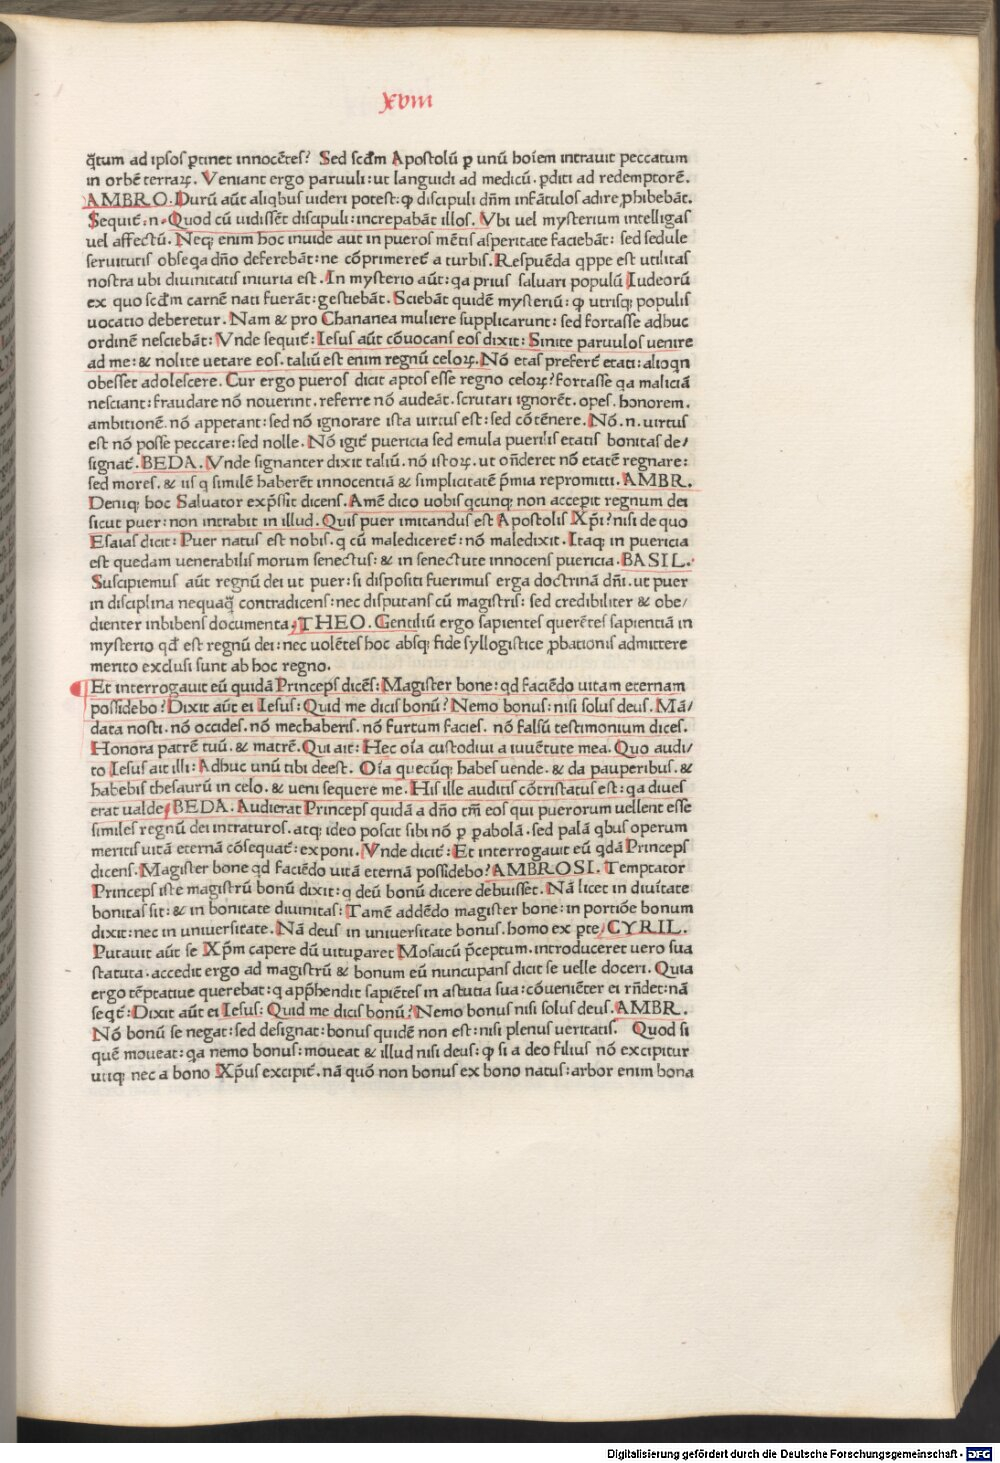 xviii
q̄tum ad ipsos ꝑtinet innocētes? Sed scd̄m Apostolū ꝑ unū hoīem intrauit peccatum
in orbē terraꝝ. Veniant ergo paruuli: ut languidi ad medicū. ꝑditi ad redemptorē.
AMBRO. Durū aūt aliqbus uideri potest: ꝙ discipuli dn̄m infātulos adire ꝓhibebāt.
Sequit̄. n. Quod cū uidissēt discipuli: increpabāt illos. Vbi uel mysterium intelligas
uel affectū. Neqꝫ enim hoc inuide aut in pueros mētis asperitate faciebāt: sed sedule
seruitutis obseqa dn̄o deferebāt: ne cōprimeret̄ a turbis. Respuēda qppe est utilitas
nostra ubi diuinitatis iniuria est. In mysterio aūt: qa prius saluari populū Iudeorū
ex quo scd̄m carnē nati fuerāt: gestiebāt. Sciebāt quidē mysteriū: ꝙ utrisqꝫ populis
uocatio deberetur. Nam & pro Chananea muliere supplicarunt: sed fortasse adhuc
ordinē nesciebāt: Vnde sequit̄: Iesus aūt cōuocans eos dixit: Sinite paruulos uenire
ad me: & nolite uetare eos. taliū est enim regnū celoꝝ. Nō etas prefert̄ etati: alioqn
obesset adolescere. Cur ergo pueros dicit aptos esse regno celoꝝ? fortasse qa maliciā
nesciant: fraudare nō nouerint. referre nō audeāt. scrutari ignorēt. opes. honorem.
ambitionē. nō appetant: sed nō ignorare ista uirtus est: sed cōtēnere. Nō. n. uirtus
est nō posse peccare: sed nolle. Nō igit̄ puericia sed emula puerilis etatis bonitas de/
signat̄. BEDA. Vnde signanter dixit taliū. nō istoꝝ. ut on̄deret nō etatē regnare:
sed mores. & iis q similē haberēt innocentiā & simplicitatē p̄mia repromitti. AMBR.
Deniqꝫ hoc Saluator exp̄ssit dicens. Amē dico uobis qcunqꝫ non acceperit regnum dei
sicut puer: non intrabit in illud. Quis puer imitandus est Apostolis Xp̄i? nisi de quo
Esaias dicit: Puer natus est nobis. q cū malediceret̄: nō maledixit. Itaqꝫ in puericia
est quedam uenerabilis morum senectus: & in senectute innocens puericia. BASIL.
Suscipiemus aūt regnū dei ut puer: si dispositi fuerimus erga doctrinā dn̄i. ut puer
in disciplina nequaq̄ contradicens: nec disputans cū magistris: sed credibiliter & obe/
dienter inbibens documenta. THEO. Gentiliū ergo sapientes querētes sapientiā in
mysterio qd̄ est regnū dei: nec uolētes hoc absqꝫ fide syllogistice ꝓbationis admittere
merito exclusi sunt ab hoc regno.
Et interrogauit eū quidā Princeps dicēs: Magister bone: qd faciēdo uitam eternam
possidebo? Dixit aūt ei Iesus: Quid me dicis bonū? Nemo bonus: nisi solus deus. Mā/
data nosti. nō occides. nō mechaberis. nō furtum facies. nō falsū testimonium dices.
Honora patrē tuū. & matrē. Qui ait: Hec oīa custodiui a iuuētute mea. Quo audi/
to Iesus ait illi: Adhuc unū tibi deest. Oīa quecūqꝫ habes uende. & da pauperibus. &
habebis thesaurū in celo. & ueni sequere me. His ille auditis cōtristatus est: qa diues
erat ualde. BEDA. Audierat Princeps quidā a dn̄o tm̄ eos qui puerorum uellent esse
similes regnū dei intraturos. atqꝫ ideo poscit sibi nō ꝑ ꝑabolā. sed palā qbus operum
meritis uitā eternā cōsequat̄: exponi. Vnde dicit̄: Et interrogauit eū qdā Princeps
dicens. Magister bone qd faciēdo uitā eternā possidebo? AMBROSI. Temptator
Princeps iste magistrū bonū dixit: q deū bonū dicere debuisset. Nā licet in diuītate
bonitas sit: & in bonitate diuinitas: Tamē addēdo magister bone: in portiōe bonum
dixit: nec in uniuersitate. Nā deus in uniuersitate bonus. homo ex pte. CYRIL.
Putauit aūt se Xp̄m capere dū uituꝑaret Mosaicū p̄ceptum. introduceret uero sua
statuta. accedit ergo ad magistrū & bonum eū nuncupans dicit se uelle doceri. Quia
ergo tēptatiue querebat: q app̄hendit sapiētes in astutia sua: cōueniēter ei rn̄det: nā
seqt̄: Dixit aūt ei Iesus: Quid me dicis bonū? Nemo bonus nisi solus deus. AMBR.
Nō bonū se negat: sed designat: bonus quidē non est: nisi plenus ueritatis. Quod si
quē moueat: qa nemo bonus: moueat & illud nisi deus: ꝙ si a deo filius nō excipitur
utiqꝫ nec a bono Xp̄us excipit̄. nā quō non bonus ex bono natus: arbor enim bona
Digitalisierung gefördert durch die Deutsche Forschungsgemeinschaft - DFG